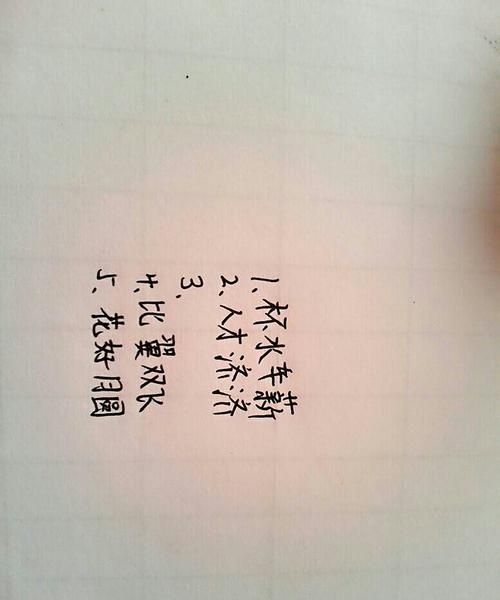 1、杯水车薪
2、人才济济
3、
4、比翼双飞
5、花好月圆